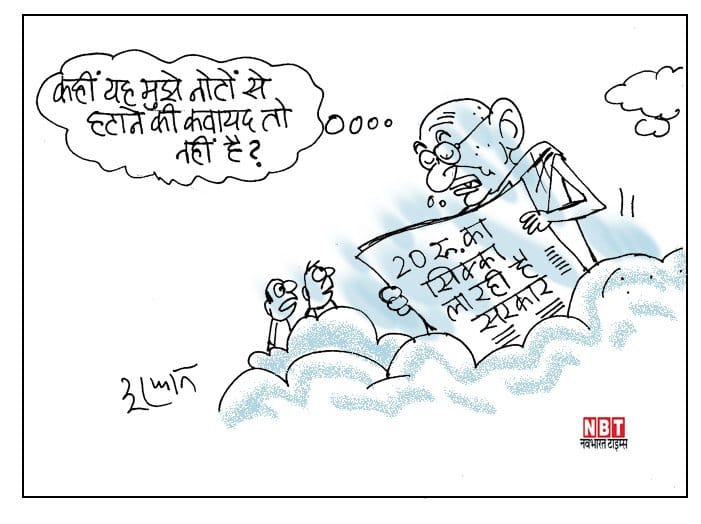 कहीं यह मुझे नोटों से
हटाने की कवायद तो
नहीं है?
20 रु. का
सिक्का
ला रही है
सरकार
NBT
नवभारत टाइम्स